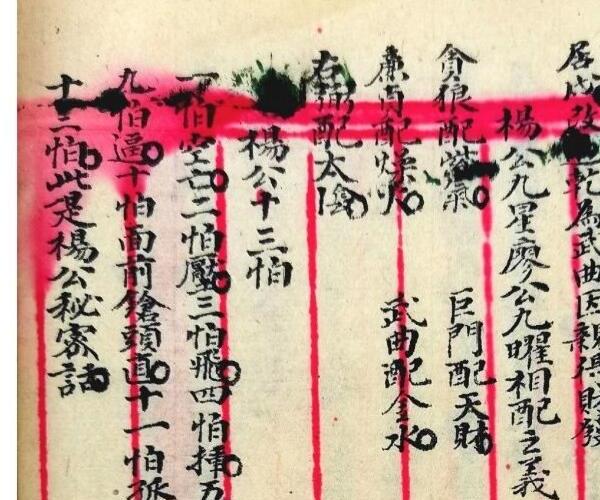 居戌改乾為武曲因親得財發
楊公九星廖公九曜相配之義
貪狼配紫氣 巨門配天財
廉貞配燥火 武曲配金水
右弼配太陰
楊公十三怕
一怕空亡二怕壓三怕飛四怕撞五
九怕逼十怕面前鎗頭直十一怕孤
十三怕此是楊公秘密話